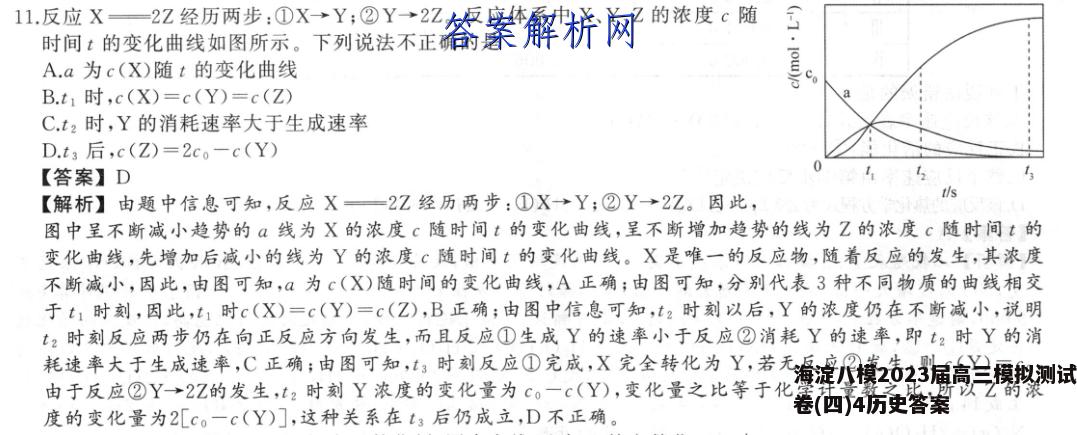 11.反应 X══2Z 经历两步:①X→Y;②Y→2Z。反应体系中 X、Y、Z 的浓度 c 随
时间 t 的变化曲线如图所示。下列说法不正确的是
答案解析网
A.a 为 c(X)随 t 的变化曲线
B.t₁ 时,c(X)=c(Y)=c(Z)
C.t₂ 时,Y 的消耗速率大于生成速率
D.t₃ 后,c(Z)=2c₀-c(Y)
c/(mol·L⁻¹)
c₀
a
0
t₁
t₂
t₃
t/s
【答案】D
【解析】由题中信息可知,反应 X══2Z 经历两步:①X→Y;②Y→2Z。因此,
图中呈不断减小趋势的 a 线为 X 的浓度 c 随时间 t 的变化曲线,呈不断增加趋势的线为 Z 的浓度 c 随时间 t 的
变化曲线,先增加后减小的线为 Y 的浓度 c 随时间 t 的变化曲线。X 是唯一的反应物,随着反应的发生,其浓度
不断减小,因此,由图可知,a 为 c(X)随时间的变化曲线,A 正确;由图可知,分别代表 3 种不同物质的曲线相交
于 t₁ 时刻,因此,t₁ 时c(X)=c(Y)=c(Z),B 正确;由图中信息可知,t₂ 时刻以后,Y 的浓度仍在不断减小,说明
t₂ 时刻反应两步仍在向正反应方向发生,而且反应①生成 Y 的速率小于反应②消耗 Y 的速率,即 t₂ 时 Y 的消
耗速率大于生成速率,C 正确;由图可知,t₃ 时刻反应①完成,X 完全转化为 Y,若无反应②发生,则 c(Y)=c
由于反应②Y→2Z的发生,t₂ 时刻 Y 浓度的变化量为 c₀-c(Y),变化量之比等于化学计量数之比,所以 Z 的浓
度的变化量为2[c₀-c(Y)],这种关系在 t₃ 后仍成立,D 不正确。
海淀八模2023届高三模拟测试
卷(四)4历史答案